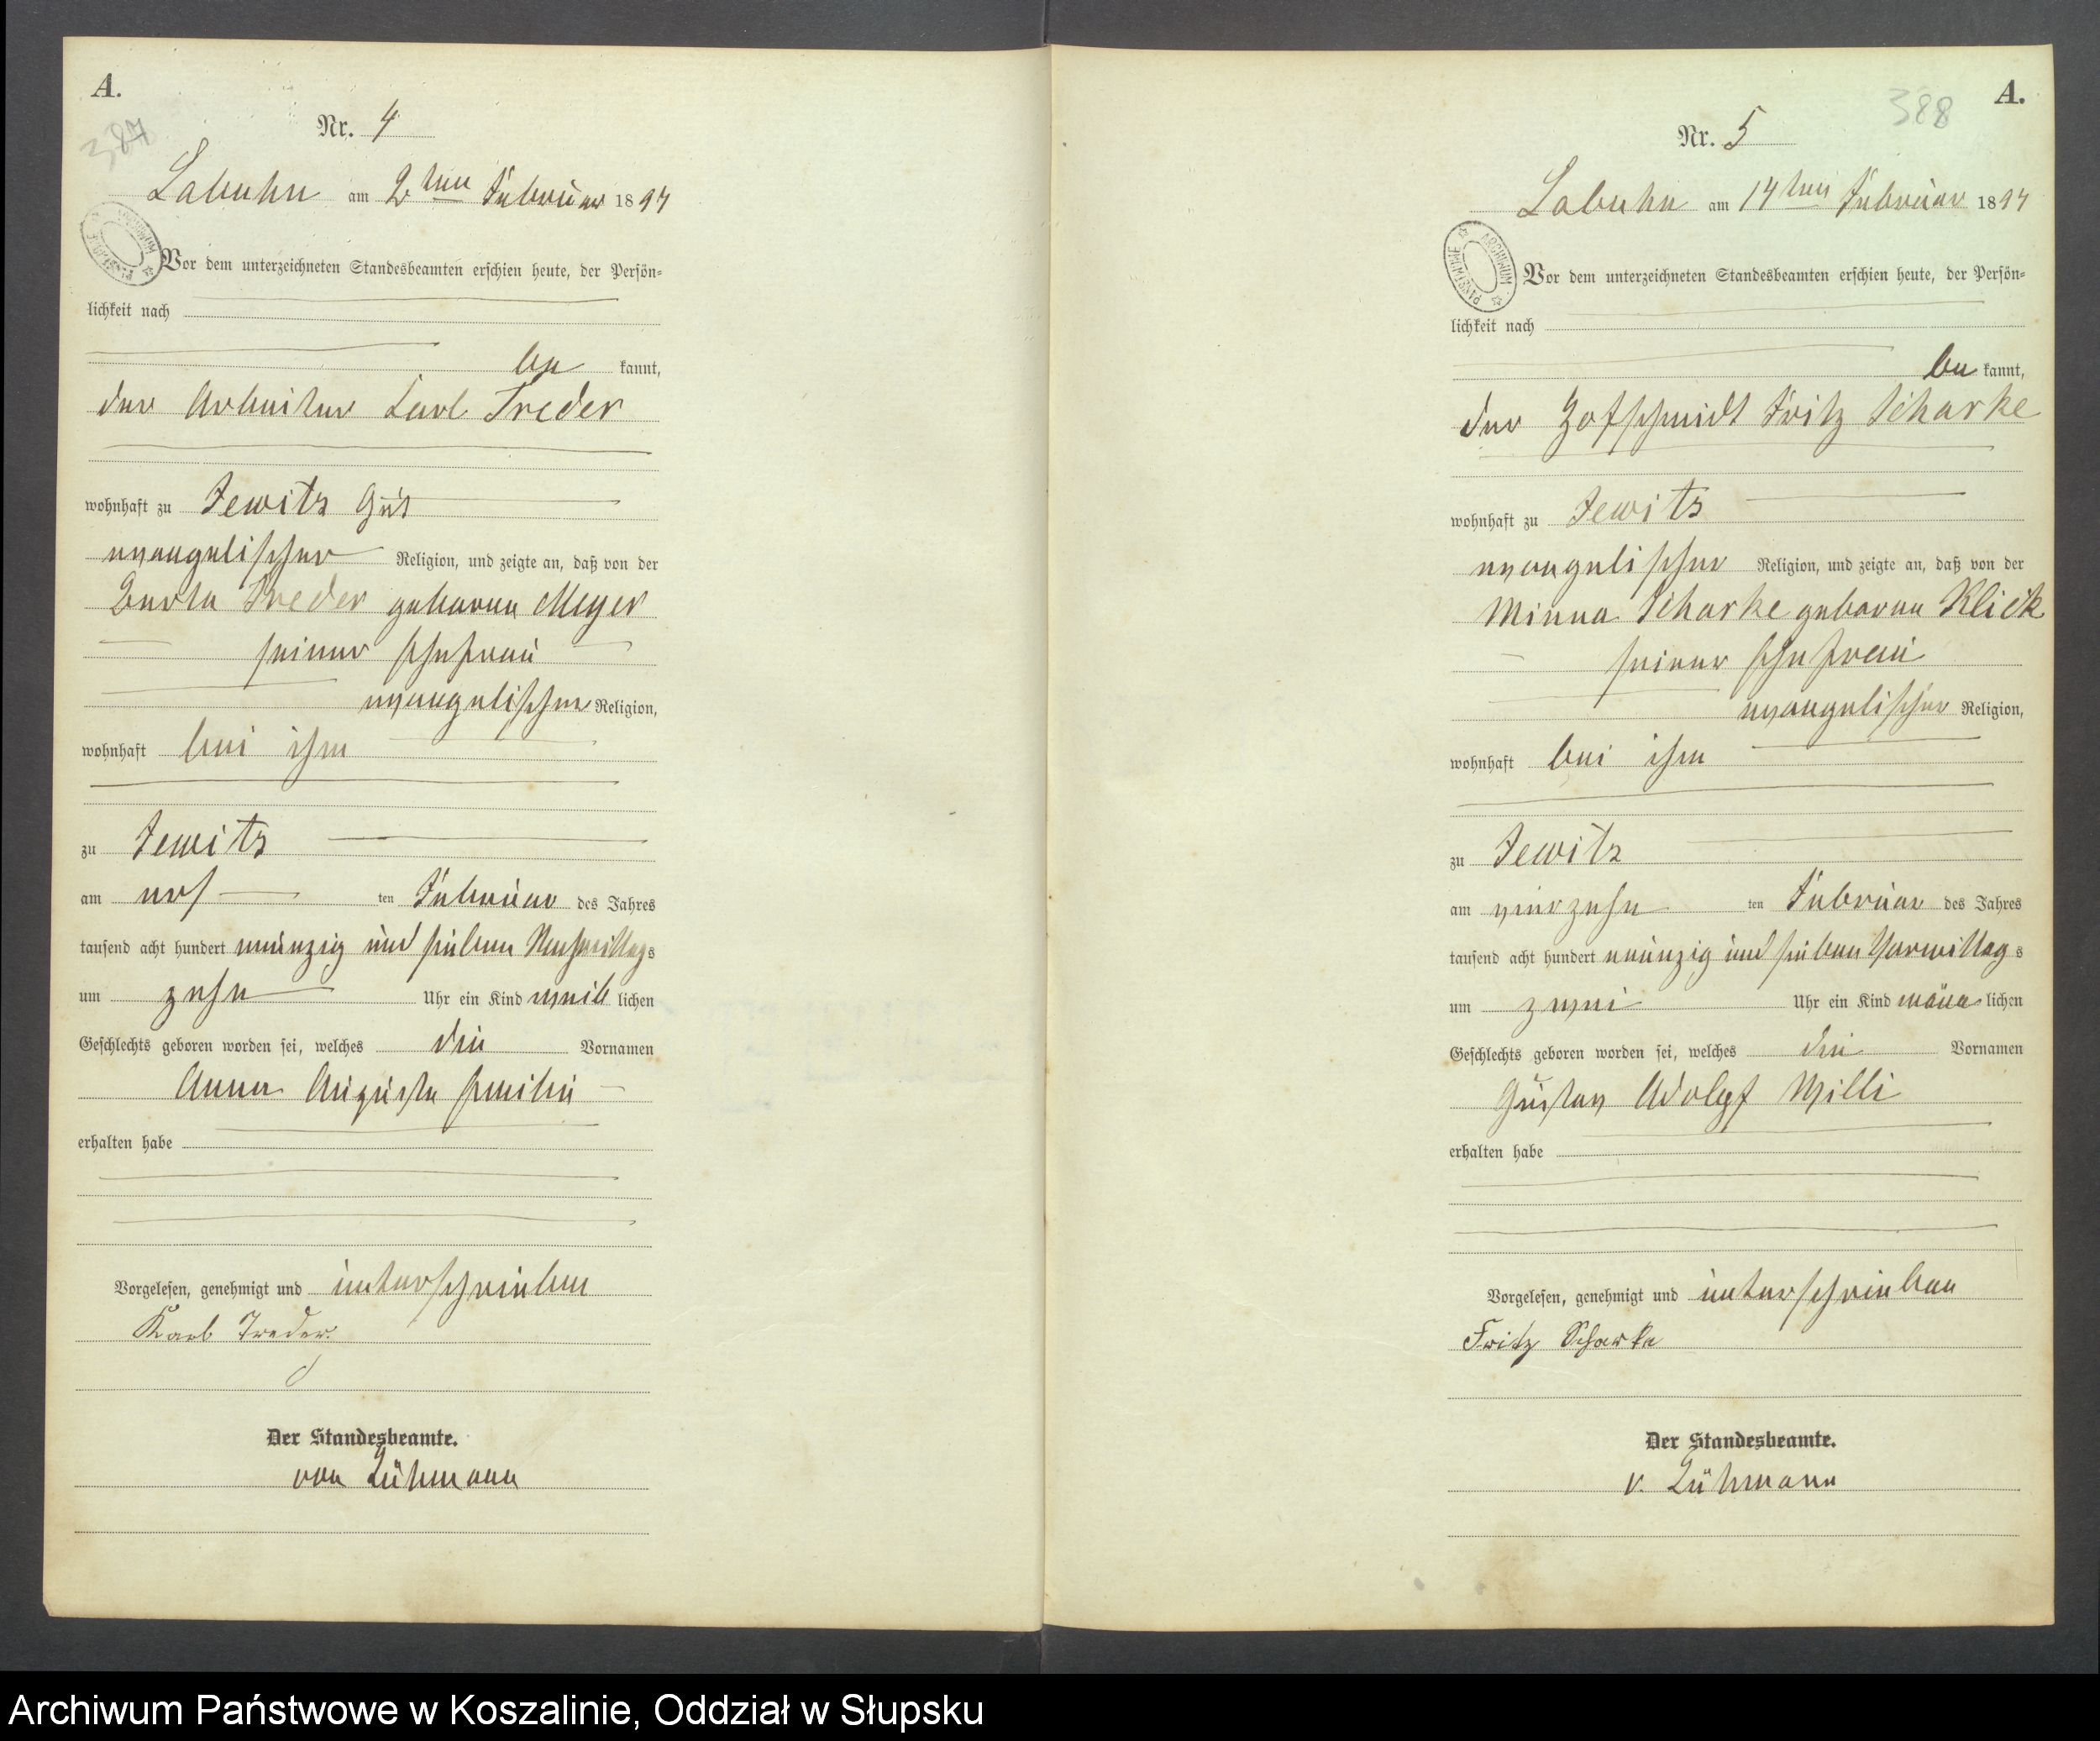 A.
387
Nr. 4
Labuhn am 2ten Februar 1897
Vor dem unterzeichneten Standesbeamten erschien heute, der Persön=
lichkeit nach
be kannt,
der Arbeiter Carl Treder
wohnhaft zu Jewitz Gut
evangelischer Religion, und zeigte an, daß von der
Treder geborene Meyer
seiner Ehefrau
evangelischer Religion,
wohnhaft bei ihm
zu Jewitz
am ers ten Februar des Jahres
tausend acht hundert neunzig und sieben Nachmittags
um zehn Uhr ein Kind weib lichen
Geschlechts geboren worden sei, welches die Vornamen
Anna Auguste Emilie
erhalten habe
Vorgelesen, genehmigt und unterschrieben
Karl Treder.
Der Standesbeamte.
von Lühmann
A.
388
Nr. 5
Labuhn am 14ten Februar 1897
ARCHIWUM PAŃSTWOWE
Vor dem unterzeichneten Standesbeamten erschien heute, der Persön=
lichkeit nach
be kannt,
der Hofschmidt Fritz Scharke
wohnhaft zu Jewitz
evangelischer Religion, und zeigte an, daß von der
Minna Scharke geborene Klick
seiner Ehefrau
evangelischer Religion,
wohnhaft bei ihm
zu Jewitz
am vierzehn ten Februar des Jahres
tausend acht hundert neunzig und sieben Vormittags
um zwei Uhr ein Kind männ lichen
Geschlechts geboren worden sei, welches die Vornamen
Gustav Adolf Willi
erhalten habe
Vorgelesen, genehmigt und unterschrieben
Fritz Scharke
Der Standesbeamte.
v. Lühmann
Archiwum Państwowe w Koszalinie, Oddział w Słupsku